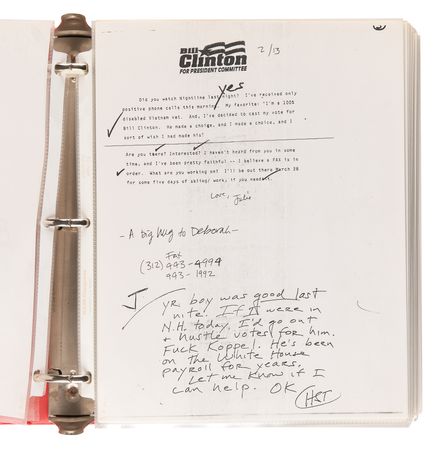 Bill
Clinton
FOR PRESIDENT COMMITTEE
2/13
yes
Did you watch Nightline last night? I've received only
positive phone calls this morning. My favorite: "I'm a 100%
disabled Vietnam vet. And, I've decided to cast my vote for
Bill Clinton. He made a choice, and I made a choice, and I
sort of wish I had made his!
Are you there? Interested? I haven't heard from you in some
time, and I've been pretty faithful -- I believe a FAX is in
order. What are you working on? I'll be out there March 28
for some five days of skiing/ work, if you need it.
Love, Julie
- A big hug to Deborah -
Fax
(312) 943-4994
943-1992
J yr boy was good last
nite. If I were in
N.H. today, I'd go out
& hustle votes for him.
Fuck Koppel. He's been
on the White House
payroll for years.
Let me know if I
can help. OK HST